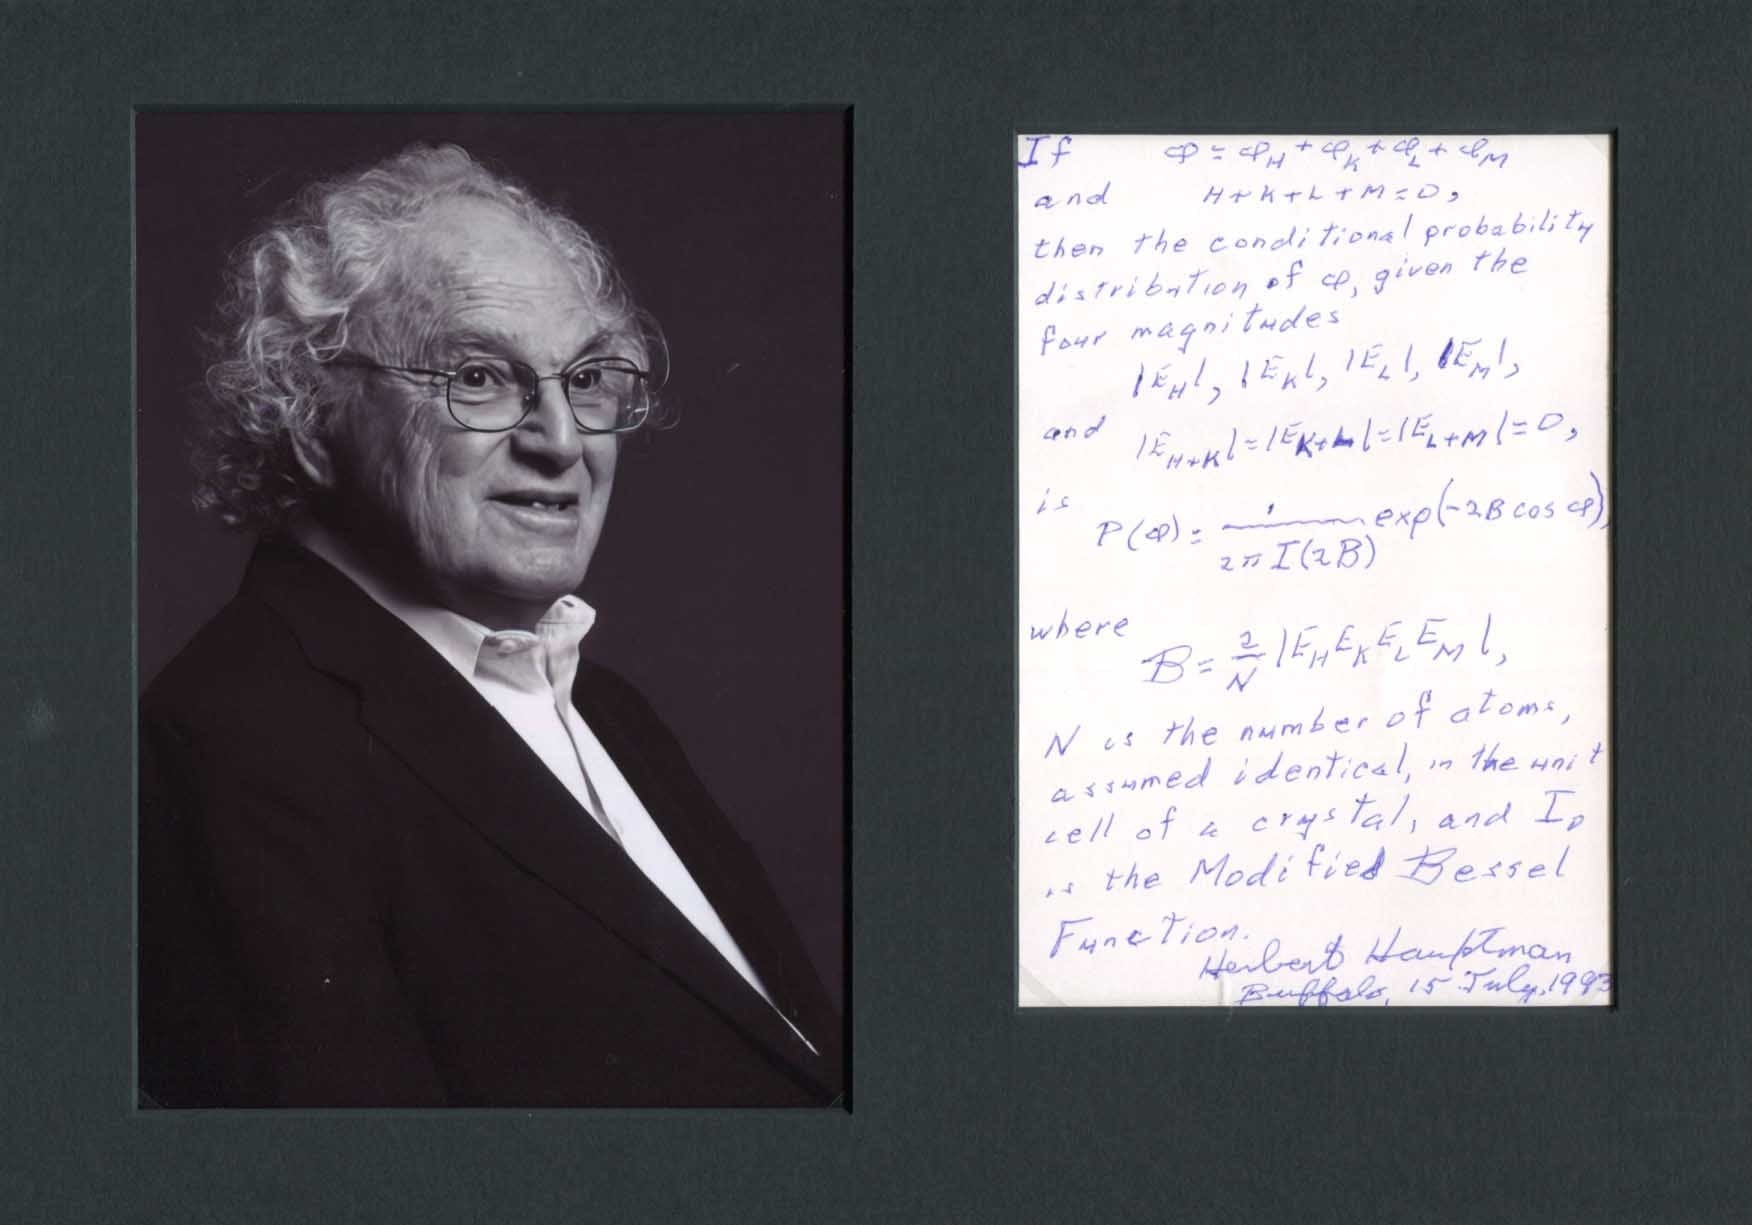 If φ = φ_H + φ_K + φ_L + φ_M
and H + K + L + M = 0,
then the conditional probability
distribution of φ, given the
four magnitudes
|E_H|, |E_K|, |E_L|, |E_M|,
and |E_H+K| = |E_K+L| = |E_L+M| = 0,
is
P(φ) = 1/(2π I(2B)) exp(-2B cos φ),
where
B = 2/N |E_H E_K E_L E_M|,
N is the number of atoms,
assumed identical, in the unit
cell of a crystal, and I_0
is the Modified Bessel
Function.
Herbert Hauptman
Buffalo, 15 July, 1993